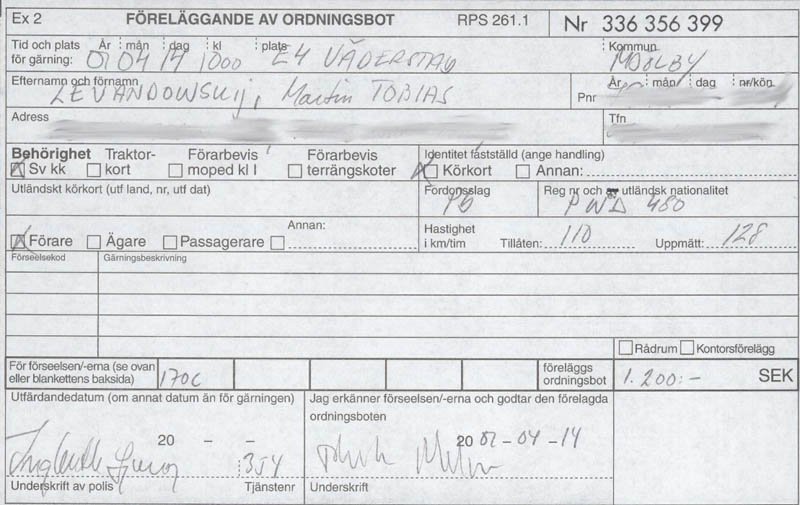 Ex 2 FÖRELÄGGANDE AV ORDNINGSBOT RPS 261.1 Nr 336 356 399
Tid och plats för gärning: År mån dag kl plats Kommun
04 14 1000 E4 VÄDERSTAD MJÖLBY
Efternamn och förnamn Pnr År mån dag nr/kön
LEVANDOWSKIJ, Martin TOBIAS
Adress Tfn
Behörighet Traktor- Förarbevis Förarbevis Identitet fastställd (ange handling)
Sv kk kort moped kl I terrängskoter Körkort Annan:
Utländskt körkort (utf land, nr, utf dat) Fordonsslag Reg nr och utländsk nationalitet
PB PWD 480
Annan: Hastighet
Förare Ägare Passagerare i km/tim Tillåten: 110 Uppmätt: 128
Förseelsekod Gärningsbeskrivning
Rådrum Kontorsförelägg
För förseelsen/-erna (se ovan föreläggs
eller blankettens baksida) 170C ordningsbot 1.200:- SEK
Utfärdandedatum (om annat datum än för gärningen) Jag erkänner förseelsen/-erna och godtar den förelagda
ordningsboten
20 - - 20 -04-14
354
Underskrift av polis Tjänstenr Underskrift